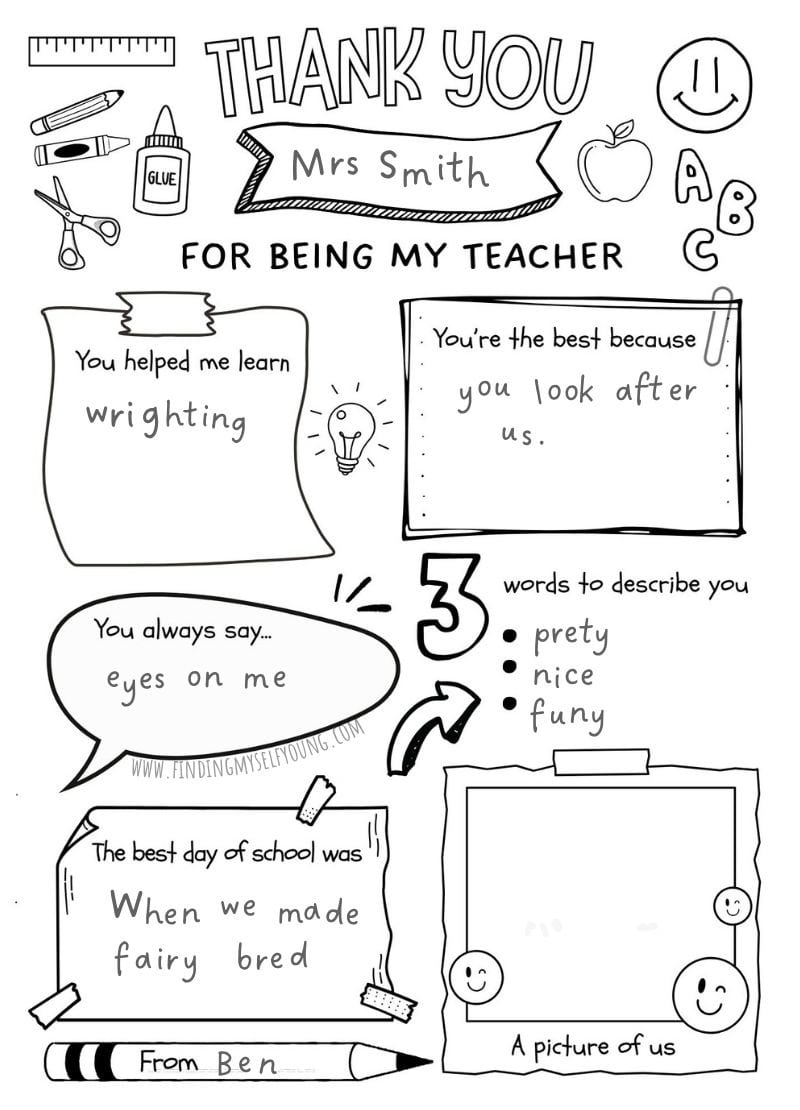 THANK YOU
GLUE
Mrs Smith
A
B
C
FOR BEING MY TEACHER
You helped me learn
wrighting
You're the best because
you look after
us.
You always say...
eyes on me
WWW.FINDINGMYSELFYOUNG.COM
3 words to describe you
• prety
• nice
• funy
The best day of school was
When we made
fairy bred
A picture of us
From Ben